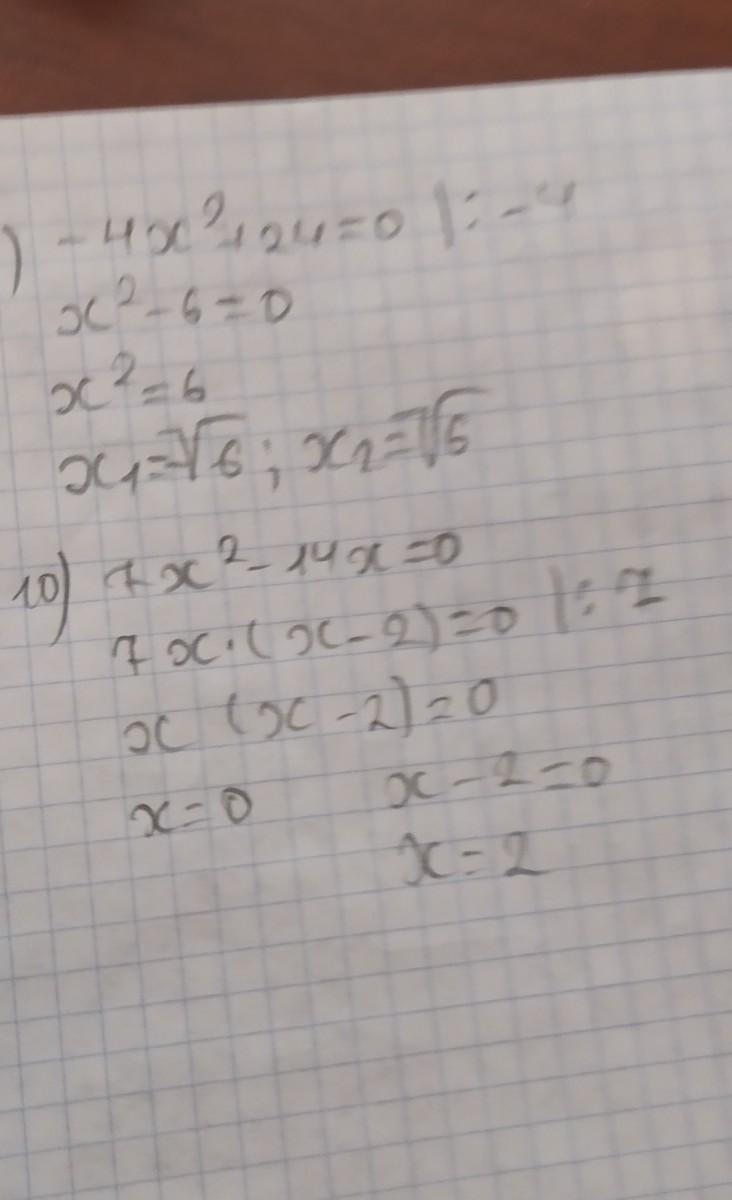 ) -4x²+24=0 |:-4
x²-6=0
x²=6
x₁=-√6; x₂=√6
10) 7x²-14x=0
7x·(x-2)=0 |:7
x (x-2)=0
x=0 x-2=0
x=2